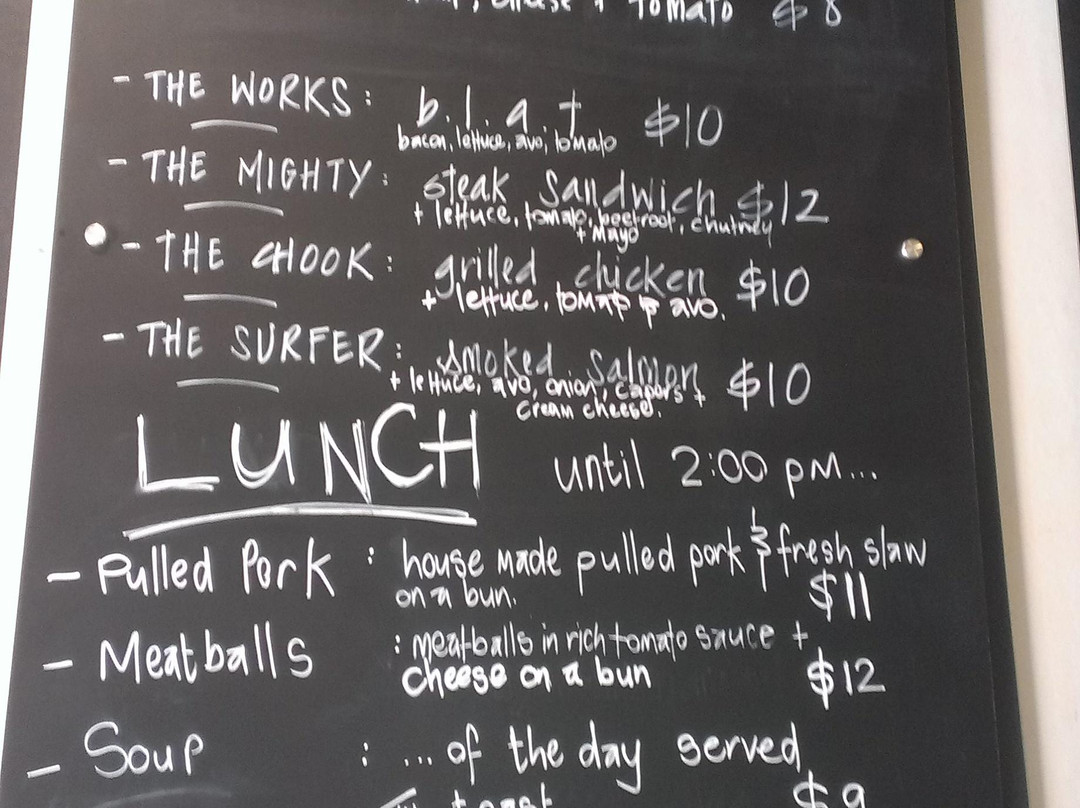 cheese + tomato $8
- THE WORKS: b.l.a.t $10
bacon, lettuce, avo, tomato
- THE MIGHTY: steak sandwich $12
+ lettuce, tomato, beetroot, chutney
+ Mayo
- THE CHOOK: grilled chicken $10
+ lettuce, tomato & avo.
- THE SURFER: smoked salmon $10
+ lettuce, avo, onion, capers +
cream cheese.
LUNCH until 2:00 pm...
- Pulled Pork : house made pulled pork & fresh slaw
on a bun. $11
- Meatballs : meatballs in rich tomato sauce +
cheese on a bun $12
- Soup : ... of the day served
toast $9